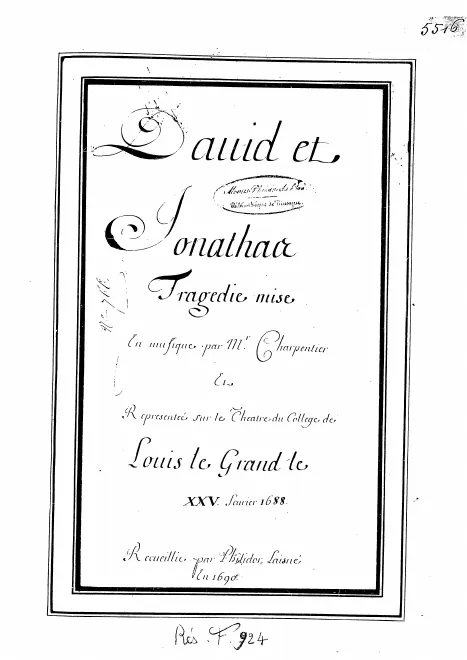 5516
Dauid et
Jonathas
Tragedie mise
En musique par Mr Charpentier
Et
Representée sur le Theatre du College de
Louis le Grand le
XXV. fevrier 1688.
Recueillie par Philidor Laisné
En 1690
Rés. F. 924